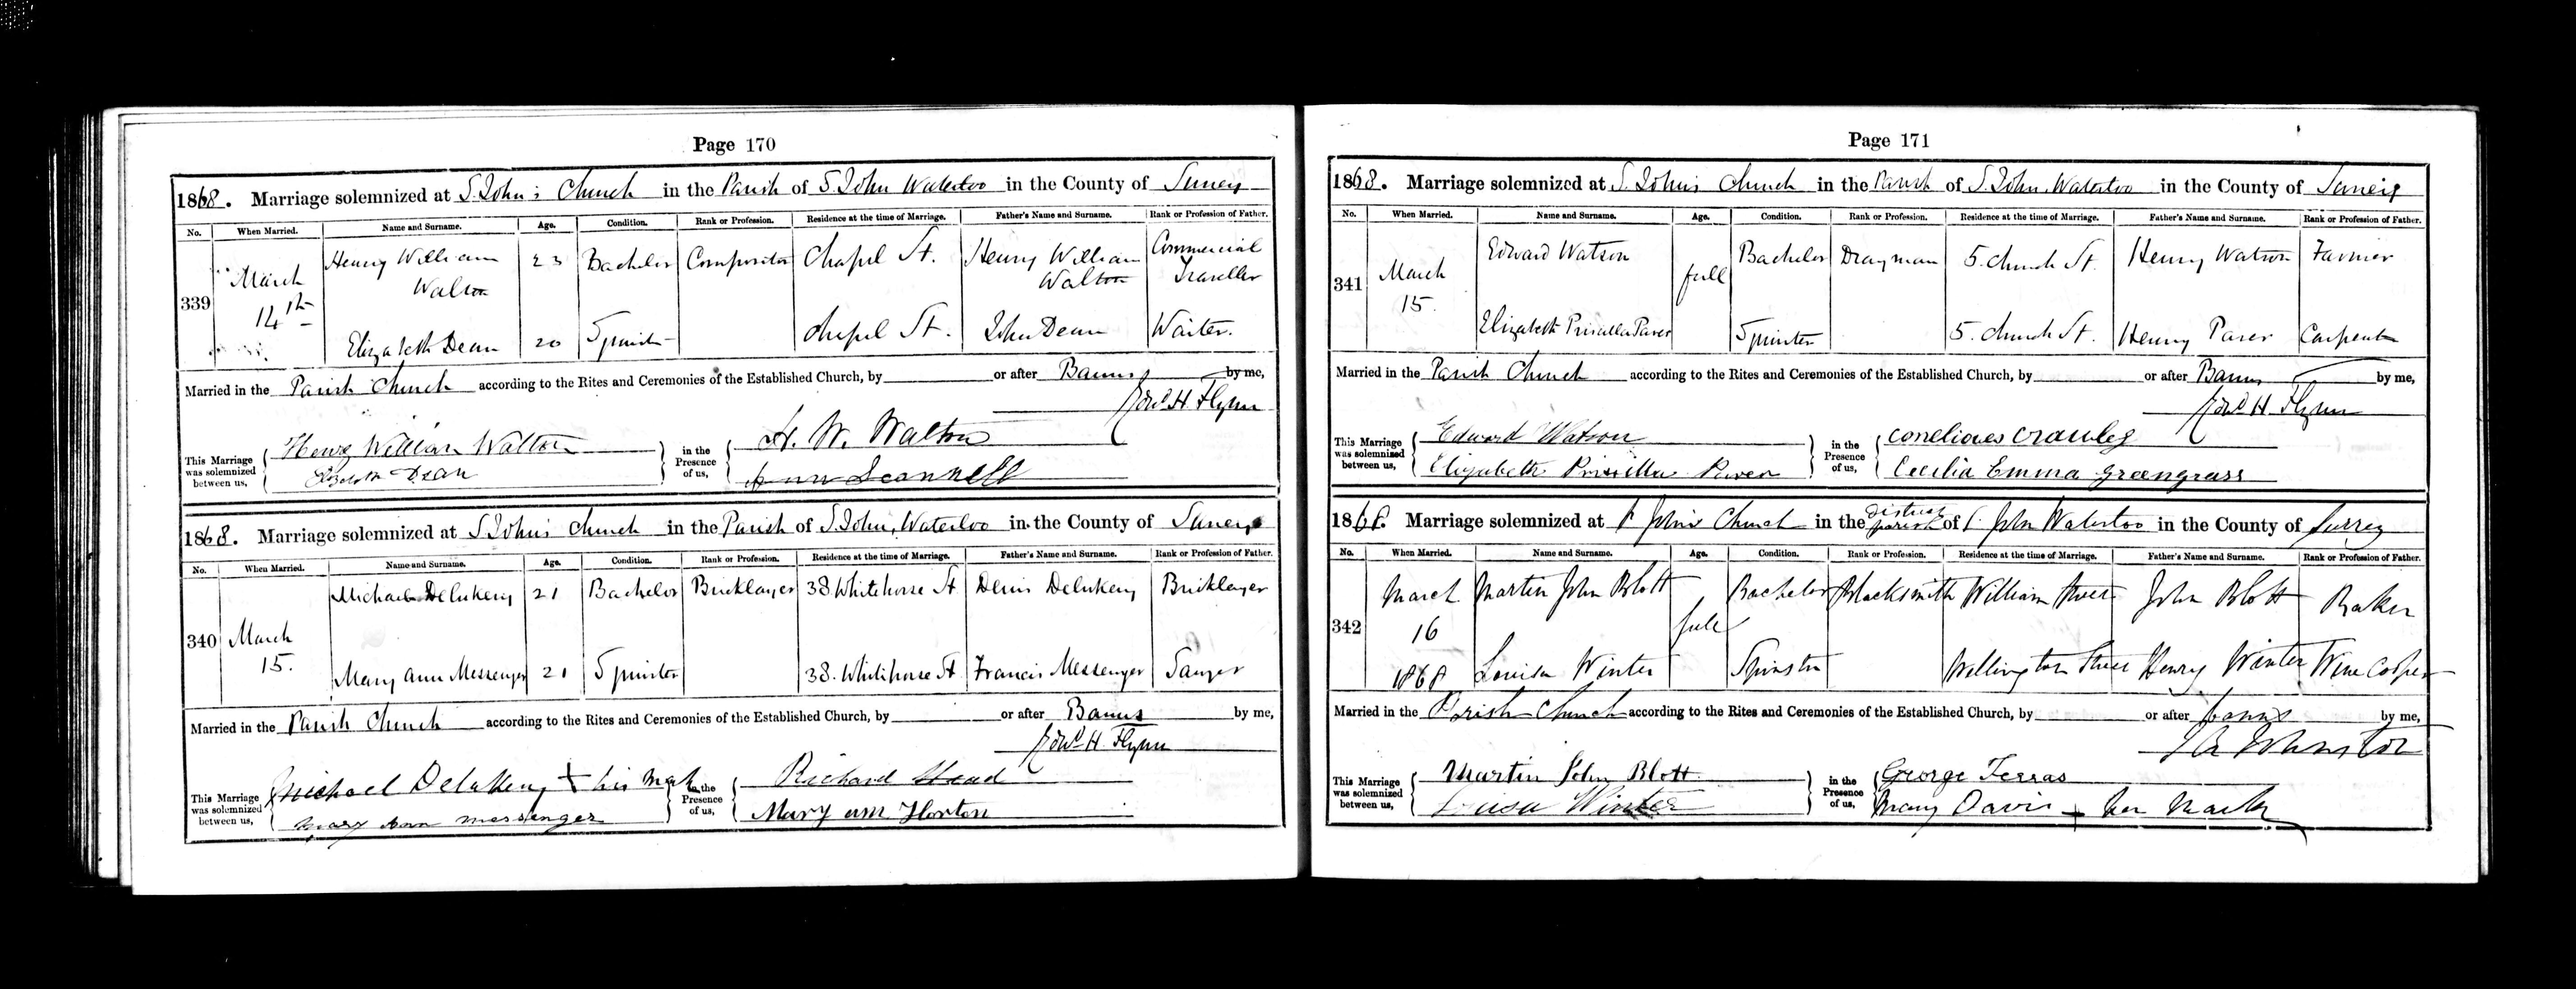 Page 170
1868. Marriage solemnized at S. John's Church in the Parish of S. John Waterloo in the County of Surrey
No. When Married. Name and Surname. Age. Condition. Rank or Profession. Residence at the time of Marriage. Father's Name and Surname. Rank or Profession of Father.
339 March 14th Henry William Walton 23 Bachelor Compositor Chapel St. Henry William Walton Commercial Traveller
Elizabeth Dean 20 Spinster Chapel St. John Dean Waiter.
Married in the Parish Church according to the Rites and Ceremonies of the Established Church, by or after Banns by me,
Edwd H. Flynn
This Marriage was solemnized between us, Henry William Walton in the Presence of us, H. W. Walton
Elizabeth Dean Ann Scannell
1868. Marriage solemnized at S. John's Church in the Parish of S. John, Waterloo in the County of Surrey
No. When Married. Name and Surname. Age. Condition. Rank or Profession. Residence at the time of Marriage. Father's Name and Surname. Rank or Profession of Father.
340 March 15. Michael Delukeny 21 Bachelor Bricklayer 38 Whitehorse St Denis Delukeny Bricklayer
Mary Ann Messenger 21 Spinster 38. Whitehorse St Francis Messenger Sawyer
Married in the Parish Church according to the Rites and Ceremonies of the Established Church, by or after Banns by me,
Edwd H. Flynn
This Marriage was solemnized between us, Michael + his mark in the Presence of us, Richard Stead
Mary Ann messenger Mary ann Horton
Page 171
1868. Marriage solemnized at S. John's Church in the Parish of S. John, Waterloo in the County of Surrey
No. When Married. Name and Surname. Age. Condition. Rank or Profession. Residence at the time of Marriage. Father's Name and Surname. Rank or Profession of Father.
341 March 15. Edward Watson full Bachelor Drayman 5. Church St. Henry Watson Farrier
Elizabeth Priscilla Paver Spinster 5. Church St. Henry Paver Carpenter
Married in the Parish Church according to the Rites and Ceremonies of the Established Church, by or after Banns by me,
Edwd H. Flynn
This Marriage was solemnized between us, Edward Watson in the Presence of us, Crawley
Elizabeth Priscilla Paver Cecilia Emma Greengrass
1868. Marriage solemnized at St John's Church in the District parish of St John Waterloo in the County of Surrey
No. When Married. Name and Surname. Age. Condition. Rank or Profession. Residence at the time of Marriage. Father's Name and Surname. Rank or Profession of Father.
342 March 16 1868 Martin John Blott full Bachelor Blacksmith William Street John Blott Baker
Louisa Winter Spinster Wellington Street Henry Winter Wine Cooper
Married in the Parish Church according to the Rites and Ceremonies of the Established Church, by or after banns by me,
This Marriage was solemnized between us, Martin John Blott in the Presence of us, George Ferras
Louisa Winter Mary Davis + her Mark